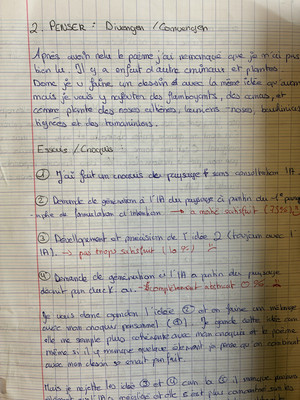 2 PENSER : Diverger / Converger
Après avoir relu le poème j'ai remarqué que je n'ai pas
bien lu. Il y a enfait d'autre animaux et plantes.
Donc je v faire un dessin avec la même idée qu'avant
mais je vais y rajouter des flamboyants, des cannas, et
comme plante des roses cultivés, lauriers-roses, bauhinias
tigrées et des romarindiers.
Essais / Croquis :
① J'ai fait un croquis de paysage sans consultation IA.
② Demande de génération à l'IA du paysage à partir du 1er para-
-graphe de formulation d'intention → à moitié satisfait
③ Développement et précision de l'idée 2 (toujours avec l'
IA). → pas trop satisfait
④ Demande de génération à l'IA à partir du paysage
décrit par duck.ai. → Complètement abstrait
Je vais donc garder l'idée ② et en faire un mélange
avec mon croquis personnel (①). Je garde cette idée car
elle me semble plus cohérente avec mon croquis et le poème
même si il y manque quelque élément je pense qu'en combinant
avec mon dessin ce serait parfait.
Mais je rejette les idées ③ et ④ car la ③